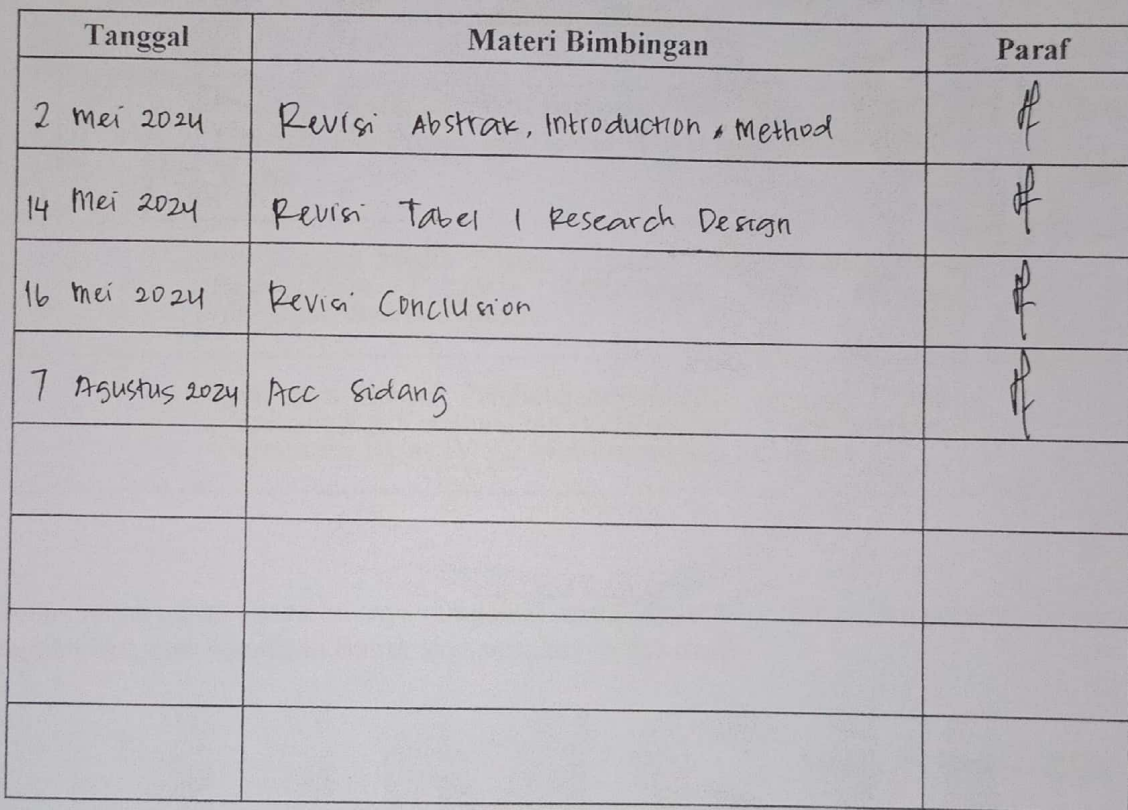 Tanggal Materi Bimbingan Paraf
2 Mei 2024 Revisi Abstrak, Introduction, Method
14 Mei 2024 Revisi Tabel 1 Research Design
16 Mei 2024 Revisi Conclusion
7 Agustus 2024 Acc Sidang